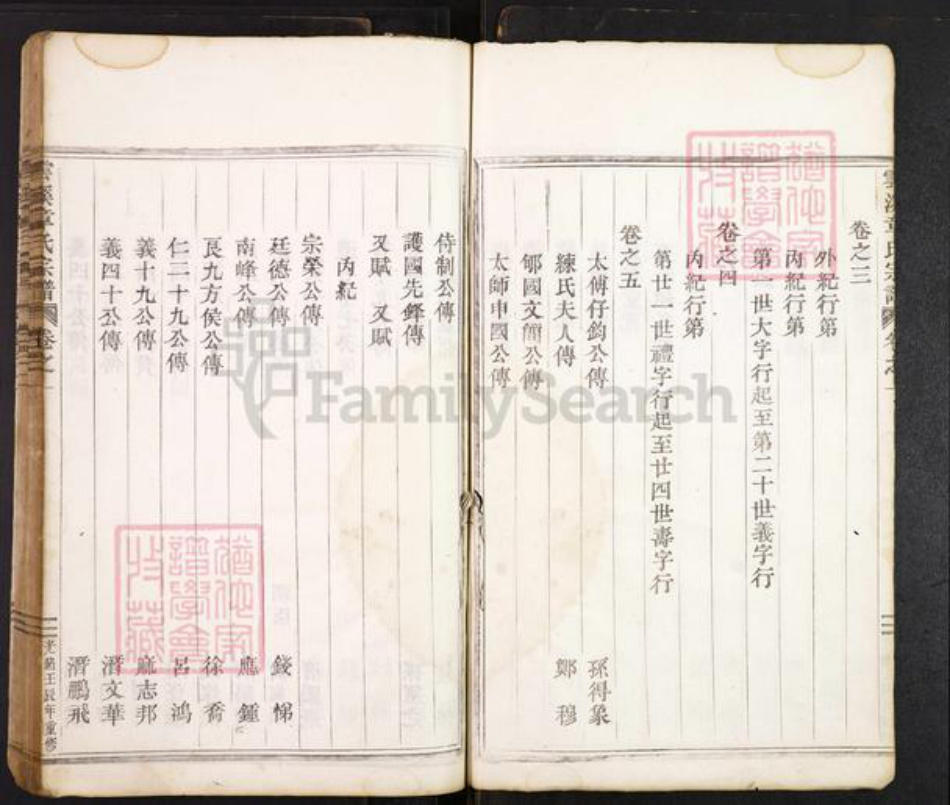 卷之三
外紀行第
內紀行第
第一世大字行起至第二十世義字行
卷之四
內紀行第
第廿一世禮字行起至廿四世壽字行
卷之五
太傅仔鈞公傳 孫得象
練氏夫人傳 鄭穆
郇國文簡公傳
太師申國公傳
侍制公傳
護國先鋒傳
又賦 又賦
內紀
宗榮公傳
廷德公傳 錢悌
南峰公傳 應鍾
良九方侯公傳 徐喬
仁二十九公傳 呂鴻
義十九公傳 麻志邦
義四十公傳 潛文華
潛鵬飛
雲溪章氏宗譜 卷之一
光緒壬辰年重修
FamilySearch